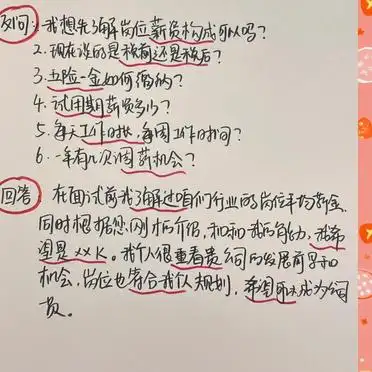 反问:我想先了解岗位薪员构成可以吗?
2.现在谈的是税前还是税后?
3.五险一金如何缴纳?
4.试用期薪资多少?
5.每天工作时长,每周工作时间?
6.一年有几次调薪机会?
回答:在面试前我了解过咱们行业的岗位平均薪金,
同时根据您刚才的介绍,和我的能力,我希
望是xxK。我个人很重看贵公司的发展前景和
机会,岗位也符合我个人规划,希望成为公司
员。